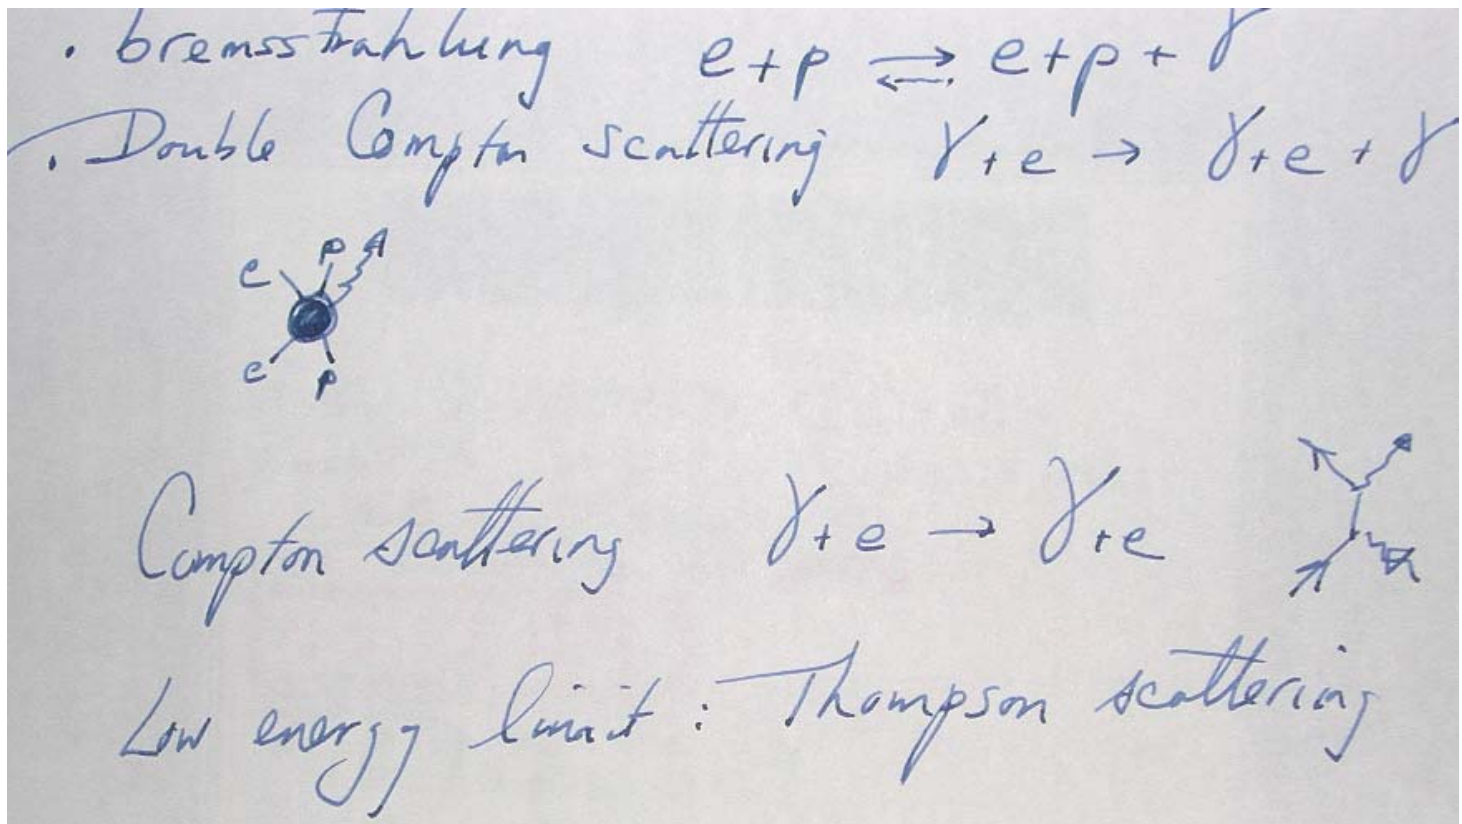 · bremsstrahlung e+p ⇌ e+p+γ
· Double Compton scattering γ+e → γ+e+γ
e p
e p
Compton scattering γ+e → γ+e
Low energy limit : Thompson scattering